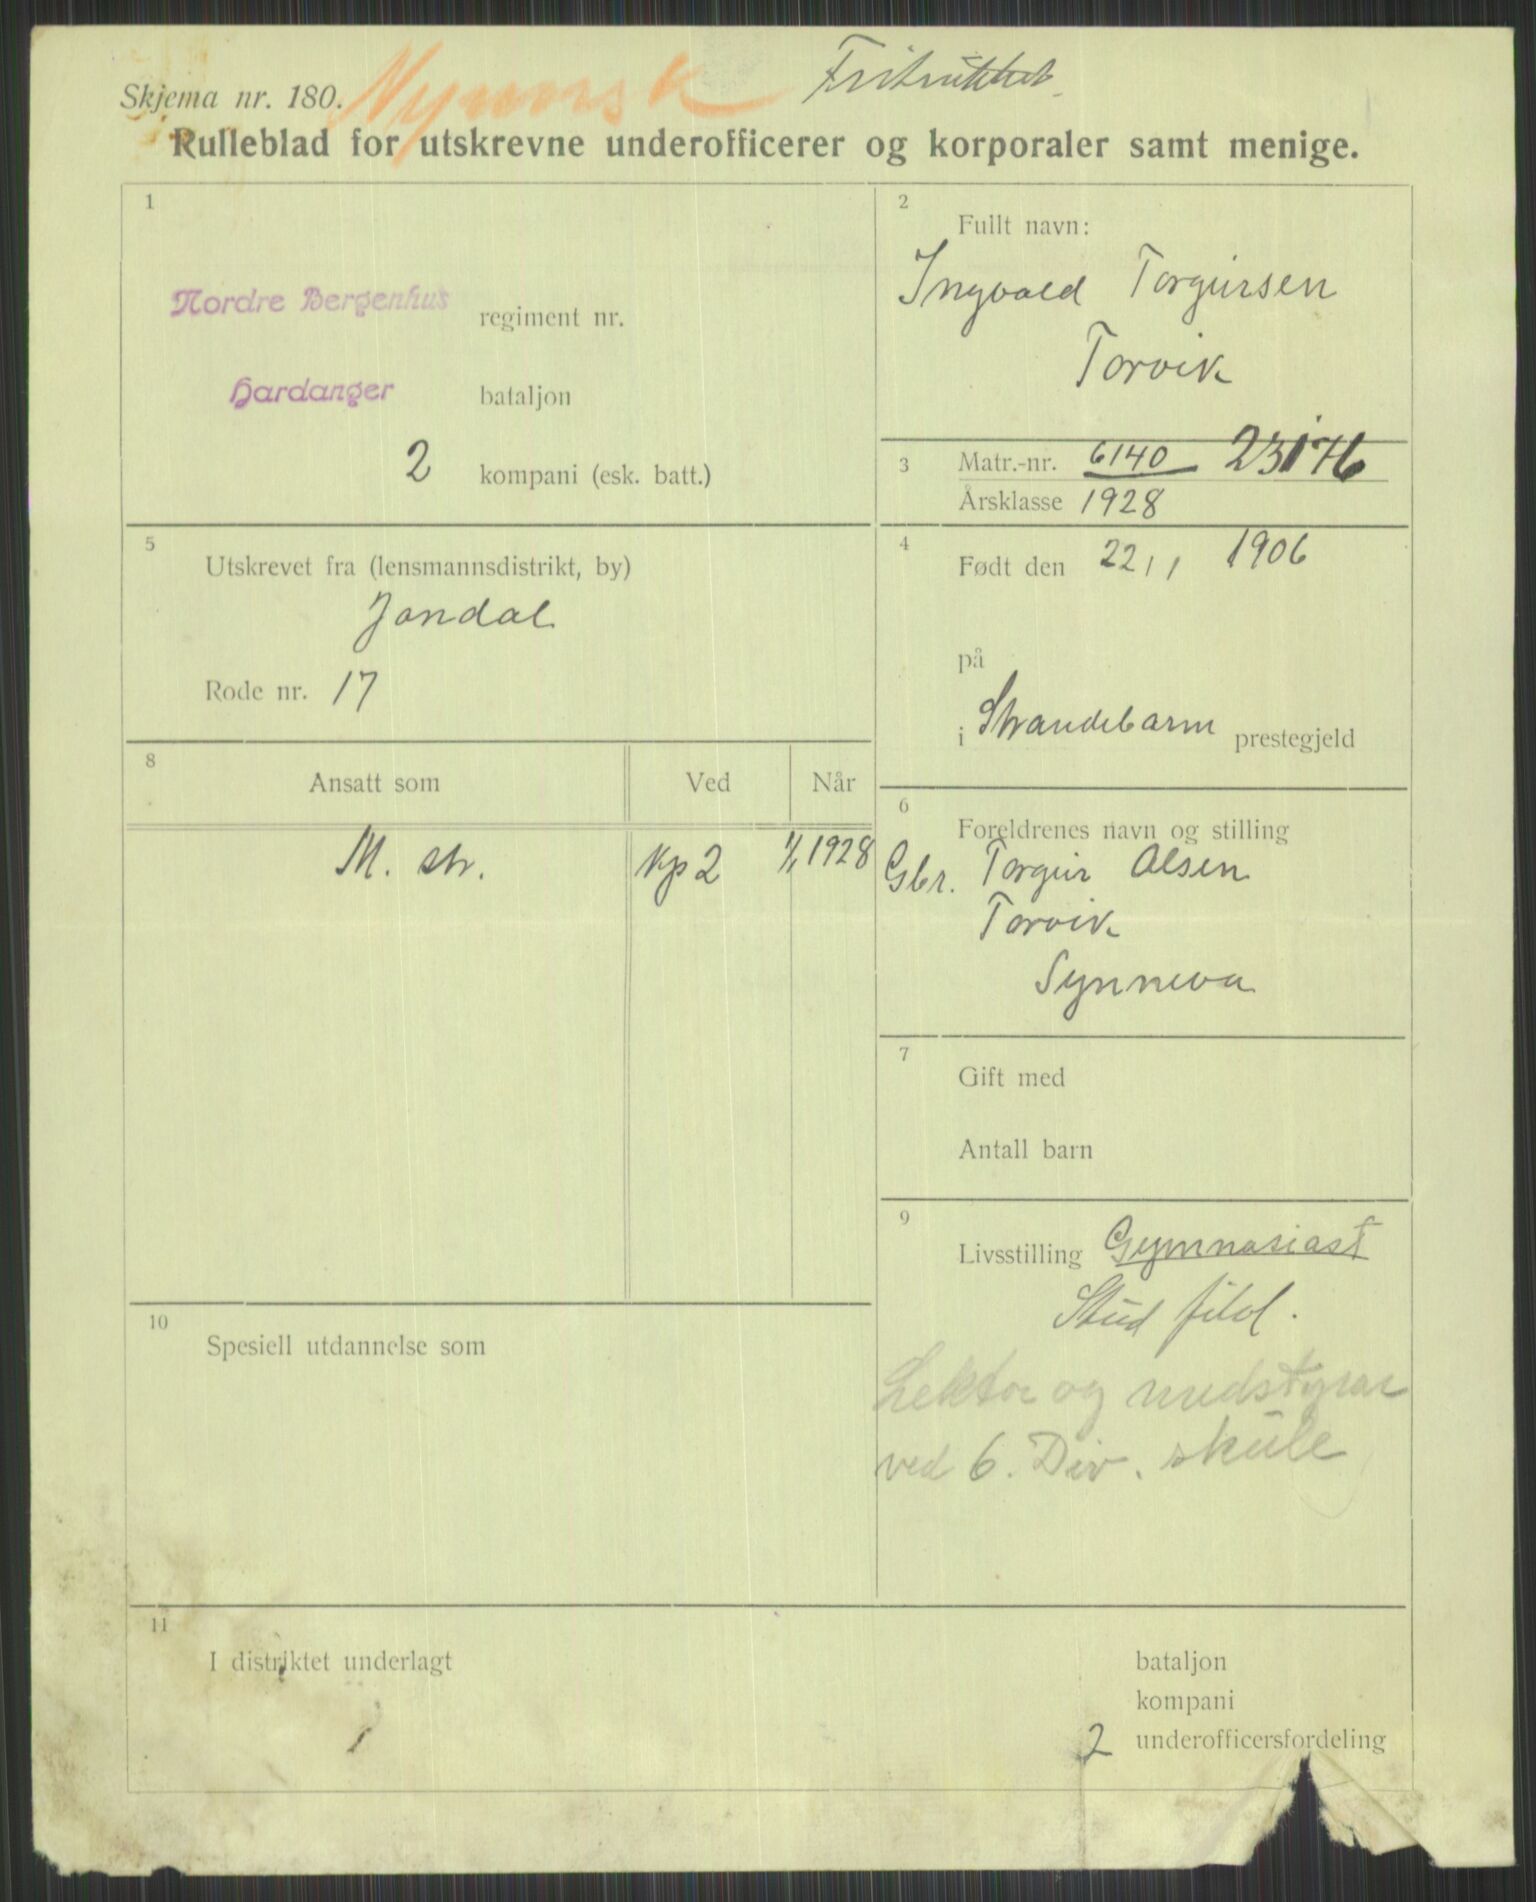 Skjema nr. 180. Nynorsk
Rulleblad for utskrevne underofficerer og korporaler samt menige.
1
Nordre Bergenhus regiment nr.
Hardanger bataljon
2 kompani (esk. batt.)
2
Fullt navn:
Ingvald Torgursen
Torvik
3 Matr.-nr. 6140 23176
Årsklasse 1928
5
Utskrevet fra (lensmannsdistrikt, by)
Jondal
Rode nr. 17
4
Født den 22/1 1906
på
i Strandebarm prestegjeld
8
Ansatt som Ved Når
M. str. Kp 2 1/1 1928
6
Foreldrenes navn og stilling
Gbr. Torgur Olsen
Torvik
Synneva
7
Gift med
Antall barn
9
Livsstilling Gymnasiast
Stud filol.
Lektor og medstyrar
ved 6. Div. skule
10
Spesiell utdannelse som
11
I distriktet underlagt
bataljon
kompani
2 underofficersfordeling